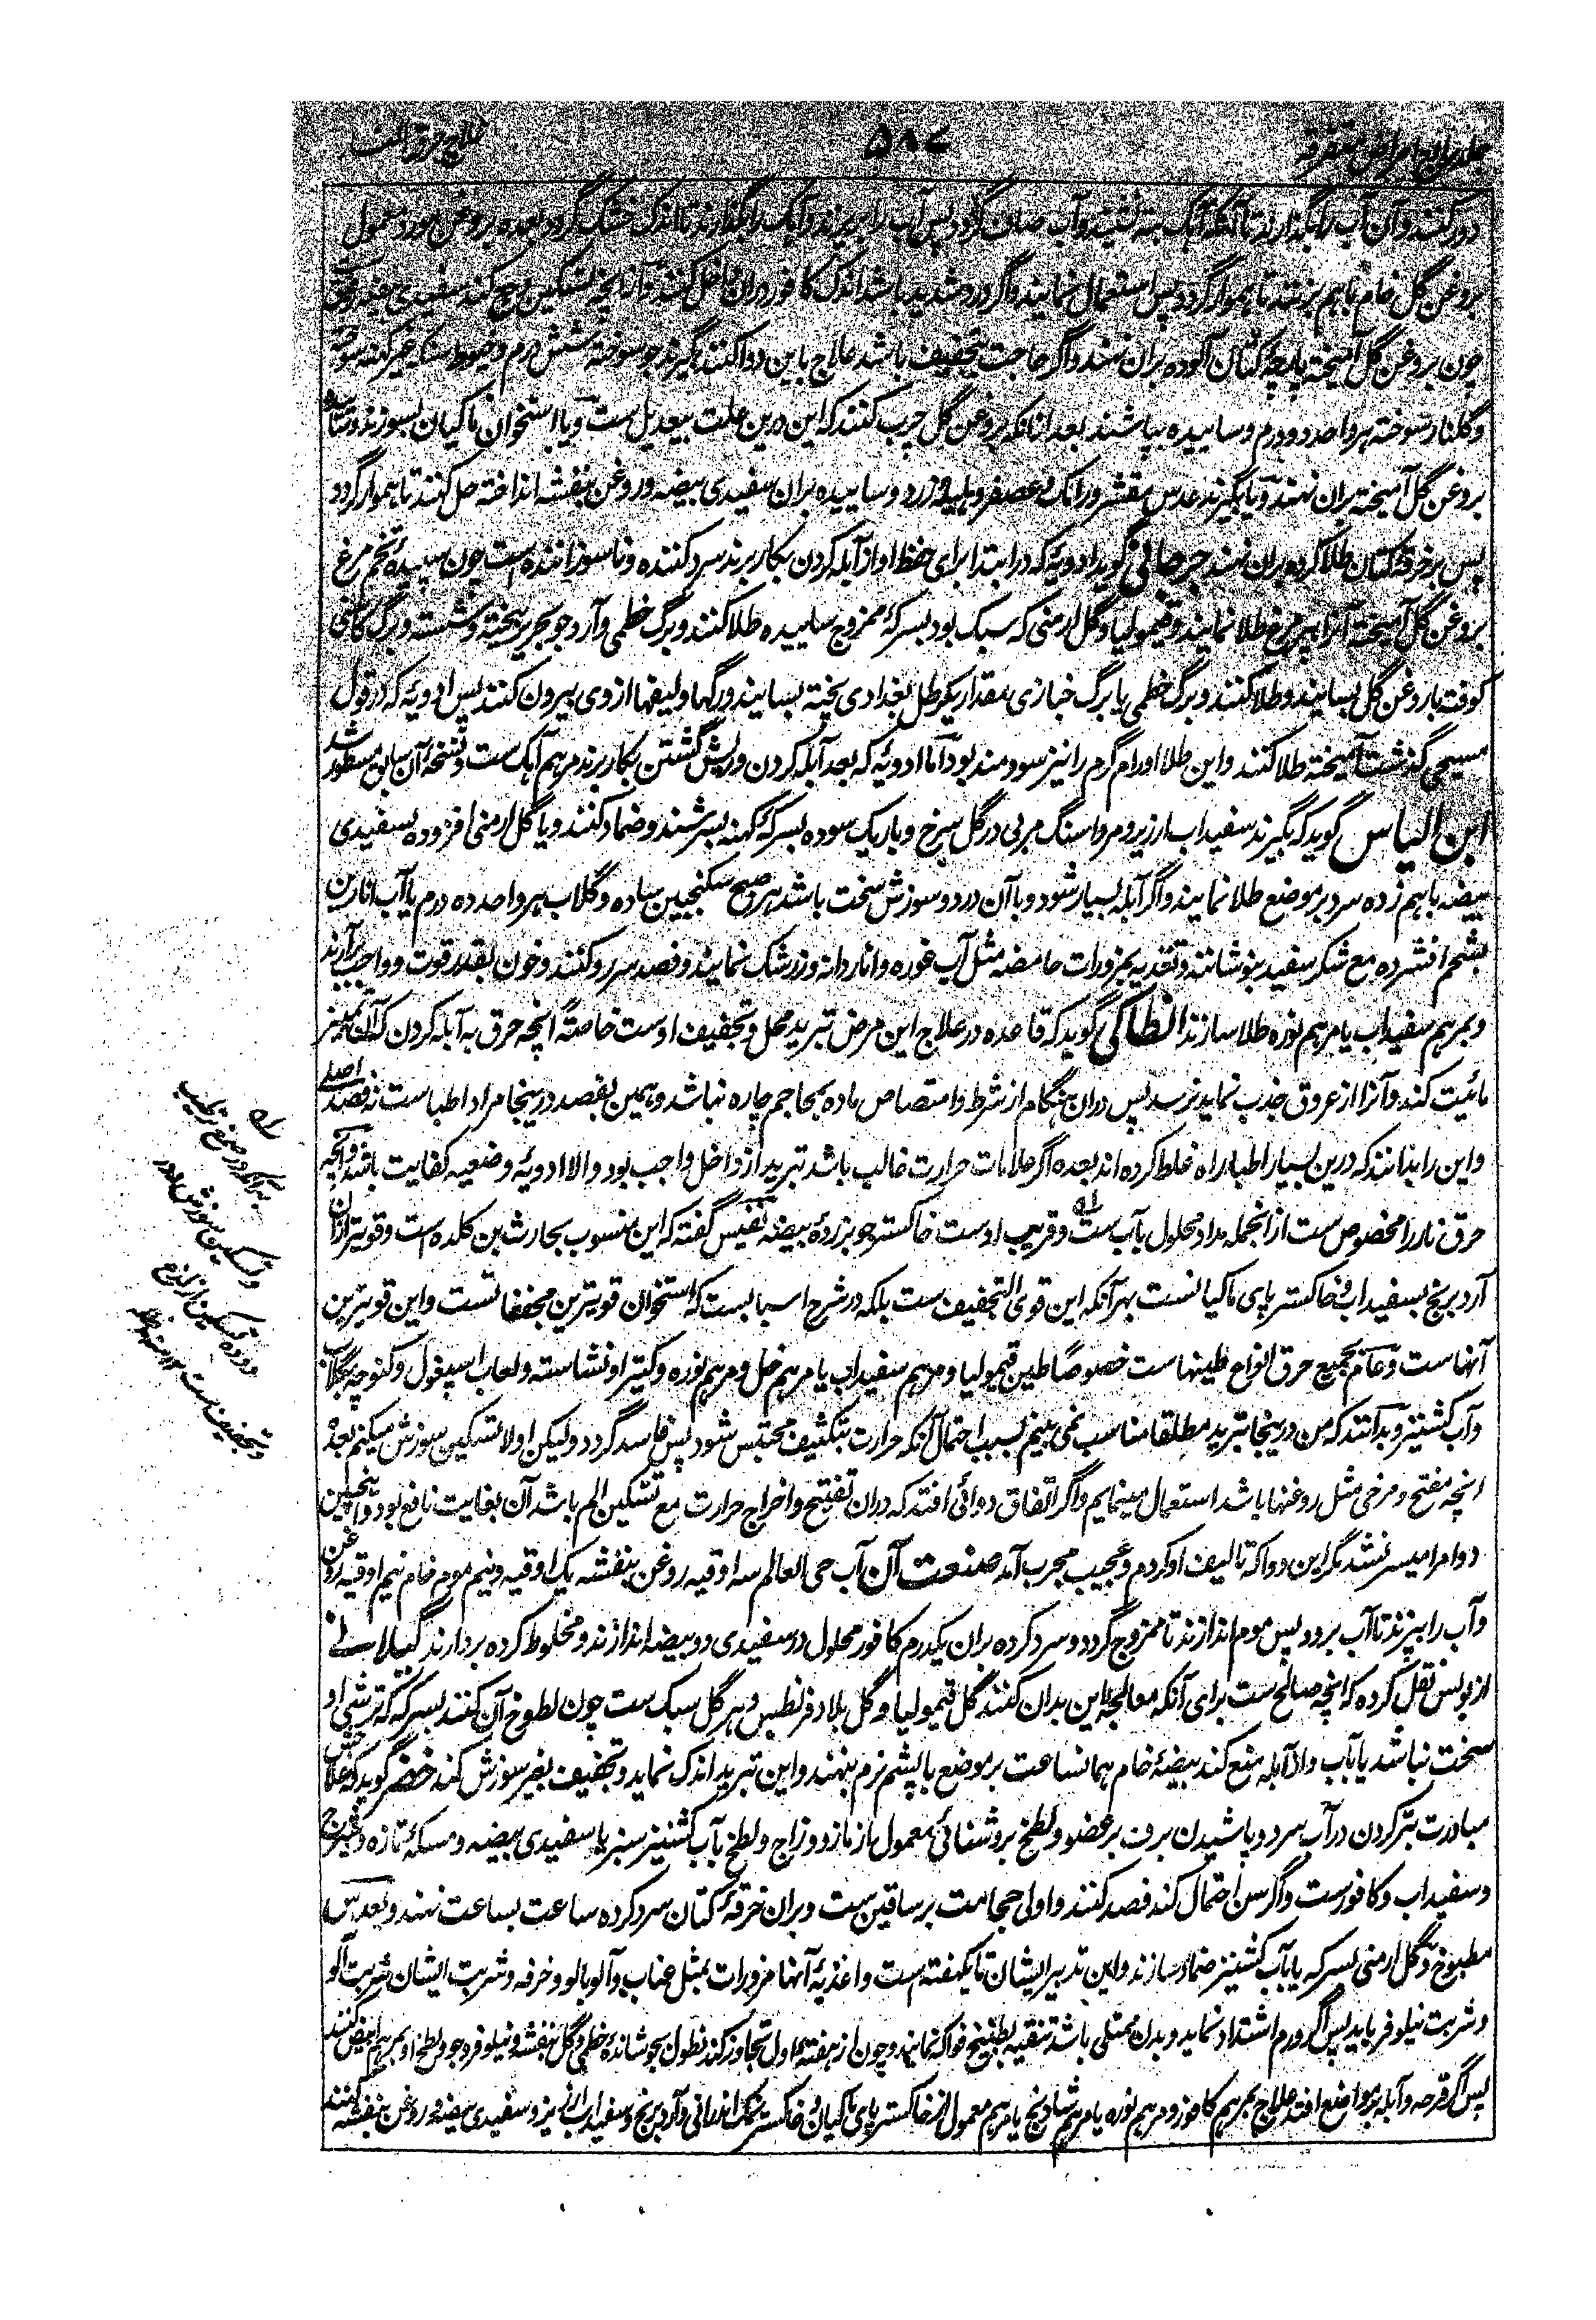 علاج حرق النار ۵۸۷ علاج امراض متفرقه
دور کنند و آن آب را بگذارند تا آنکه آهک ته نشیند و آب صاف گردد پس آب را بریزند و آهک را بگذارند تا اندک خشک گردد بعده بروغن مورد معمول
بروغن گل خام باهم بزنند تا هموار گردد پس استعمال نمایند و اگر درد شدید باشد اندک کافور دران داخل کنند و آنچه تسکین وجع کند سفیدی بیضه
چون بروغن گل آمیخته پارچه کتان آلوده بران نهند و اگر حاجت بتجفیف باشد علاج باین دوا کنند بگیرند جو سوخته شش درم و خیوط
و گلنار سوخته هر واحد دو درم و ساییده بپاشند بعد ازانکه بروغن گل چرب کنند که این درین علت بیعدیل ست و یا استخوان ماکیان بسوزند و
بروغن گل آمیخته بران نهند و یا بگیرند عدس مقشر و رانک و عصفر و هلیله زرد و ساییده بران سفیدی بیضه و روغن بنفشه انداخته حل کنند تا هموار گردد
پس بر خرقه کتان طلا کرده بران نهند جرجانی گوید ادویه که در ابتدا برای حفظ او از آبله کردن بکار برند سرد کننده و ناسوزاننده است چون سپیده تخم مرغ
بروغن گل آمیخته آنرا بپر مرغ طلا نمایند و قیمولیا و گل ارمنی که سبک بود بسرکه ممزوج ساییده طلا کنند و برگ خطمی و آرد جو بجریر بیخته و شسته و برگ کاسنی
کوفته با روغن گل بسایند و طلا کنند و برگ خطمی یا برگ خبازی بمقدار یکرطل بغدادی پخته بسایند و رگها و لیفها از وی بیرون کنند پس ادویه که در قول
مسیحی گذشت آمیخته طلا کنند و این طلا اورام گرم را نیز سودمند بود اما ادویه که بعد آبله کردن و ریش گشتن بکار برند مرهم آهک ست و نسخه آن سابق مسطور شد
ابن الیاس گوید که بگیرند سفیداب ارزیز و مرداسنگ مربی در گل سرخ و باریک سوده بسرکه کهنه بسرشند و ضماد کنند و یا گل ارمنی افزوده بسفیدی
بیضه باهم زده سرد بر موضع طلا نمایند و اگر آبله بسیار شود و با آن درد و سوزش سخت باشد هر صبح سکنجبین ساده و گلاب هر واحد ده درم یا آب انارین
بشحم افشرده مع شکر سفید بنوشانند و تغذیه بمزورات حامضه مثل آب غوره و اناردانه و زرشک نمایند و فصد سررو کنند و خون بقدر قوت و واجب برآرند
و بمرهم سفیداب یا مرهم نوره طلا سازند انطاکی گوید که قاعده در علاج این مرض تبرید محل و تجفیف اوست خاصة آنچه حرق به آبله کردن
مائیت کند و آنرا از عروق جذب نماید نرسد پس دران هنگام از شرط و امتصاص ماده بمحاجم چاره نباشد و همین بفصد درینجا مراد اطباست نه فصد اصلی
و این را بدانند که درین بسیار اطبا راه غلط کرده اند بعده اگر علامات حرارت غالب باشد تبرید از داخل واجب بود والا ادویه وضعیه کفایت باشد و آنچه
حرق نار را مخصوص ست از انجمله مداد محلول بآب ست و قریب اوست خاکستر جو بزرده بیضه نفیس گفته که این منسوب بحارث بن کلده ست و قویتر ازان
آرد برنج بسفیداب و خاکستر پای ماکیانست بهر آنکه این قوی التجفیف ست بلکه در شرح اسباب ست که استخوان قویترین مجففاتست و این قویترین
آنهاست و عام بجمیع حرق انواع طینهاست خصوصا طین قیمولیا و مرهم سفیداب یا مرهم خل و مرهم نوره و کتیرا و نشاسته و لعاب اسپغول و کنوچه بگلاب
و آب کشنیز و بدانند که من درینجا تبرید مطلقا مناسب نمی بینم بسبب احتمال آنکه حرارت بتکثیف محتبس شود پس فاسد گردد ولیکن اولا تسکین سوزش میکنم بعده
آنچه مفتح و مرخی مثل روغنها باشد استعمال مینمایم و اگر اتفاق دوائی افتد که دران تفتیح و اخراج حرارت مع تسکین الم باشد آن بغایت نافع بود و اینچنین
دوا مرا میسر نشد مگر این دوا که تالیف او کردم و عجیب مجرب آمد صنعت آن آب حی العالم سه اوقیه روغن بنفشه یک اوقیه و نیم موم خام نیم اوقیه روغن
و آب را بپزند تا آب برود پس موم اندازند تا ممزوج گردد و سرد کرده بران یکدرم کافور محلول در سفیدی دو بیضه اندازند و مخلوط کرده بردارند گیلانی
از بولس نقل کرده که آنچه صالح ست برای آنکه معالجه این بدان کنند گل قیمولیا و گل بلاد فرنطیس و هر گل سبک ست چون لطوخ آن کنند بسرکه که ترشی او
سخت نباشد یا بآب و اگر آبله منع کند بیضه خام همانساعت بر موضع با پشم نرم بنهند و این تبرید اندک نماید و تجفیف بغیر سوزش کند خضر گوید که علاجش
مبادرت بتر کردن در آب سرد و پاشیدن برف بر عضو و لطخ بروشنائی معمول از مازو و زاج و لطخ بآب کشنیز سبز یا سفیدی بیضه و مسکه تازه و
و سفیداب و کافورست و اگر سن احتمال کند فصد کنند و اولی حجامت بر ساقین ست و بران خرقه کتان سرد کرده ساعت بساعت نهند و بعدس
مطبوخ و گل ارمنی بسرکه یا بآب کشنیز ضماد سازند و این تدبیر ایشان تا یکهفته است و اغذیه آنها مزورات بمثل عناب و آلوبالو و خرفه و شربت ایشان شربت آلو
و شربت نیلوفر باید پس اگر ورم اشتداد نماید و بدن ممتلی باشد تنقیه بطبیخ فواکه نمایند و چون از هفته اول تجاوز کند نطول بجوشانده خطمی و گل بنفشه و نیلوفر و جو و لطخ او بمرهم ابیض کنند
پس اگر قرحه و آبله بمواضع افتد علاج بمرهم کافور و مرهم نوره یا مرهم شادنج یا مرهم معمول از خاکستر پای ماکیان و خاکستر نمک اندرانی و آرد برنج و سفیداب ارزیز و سفیدی بیضه و روغن بنفشه کنند